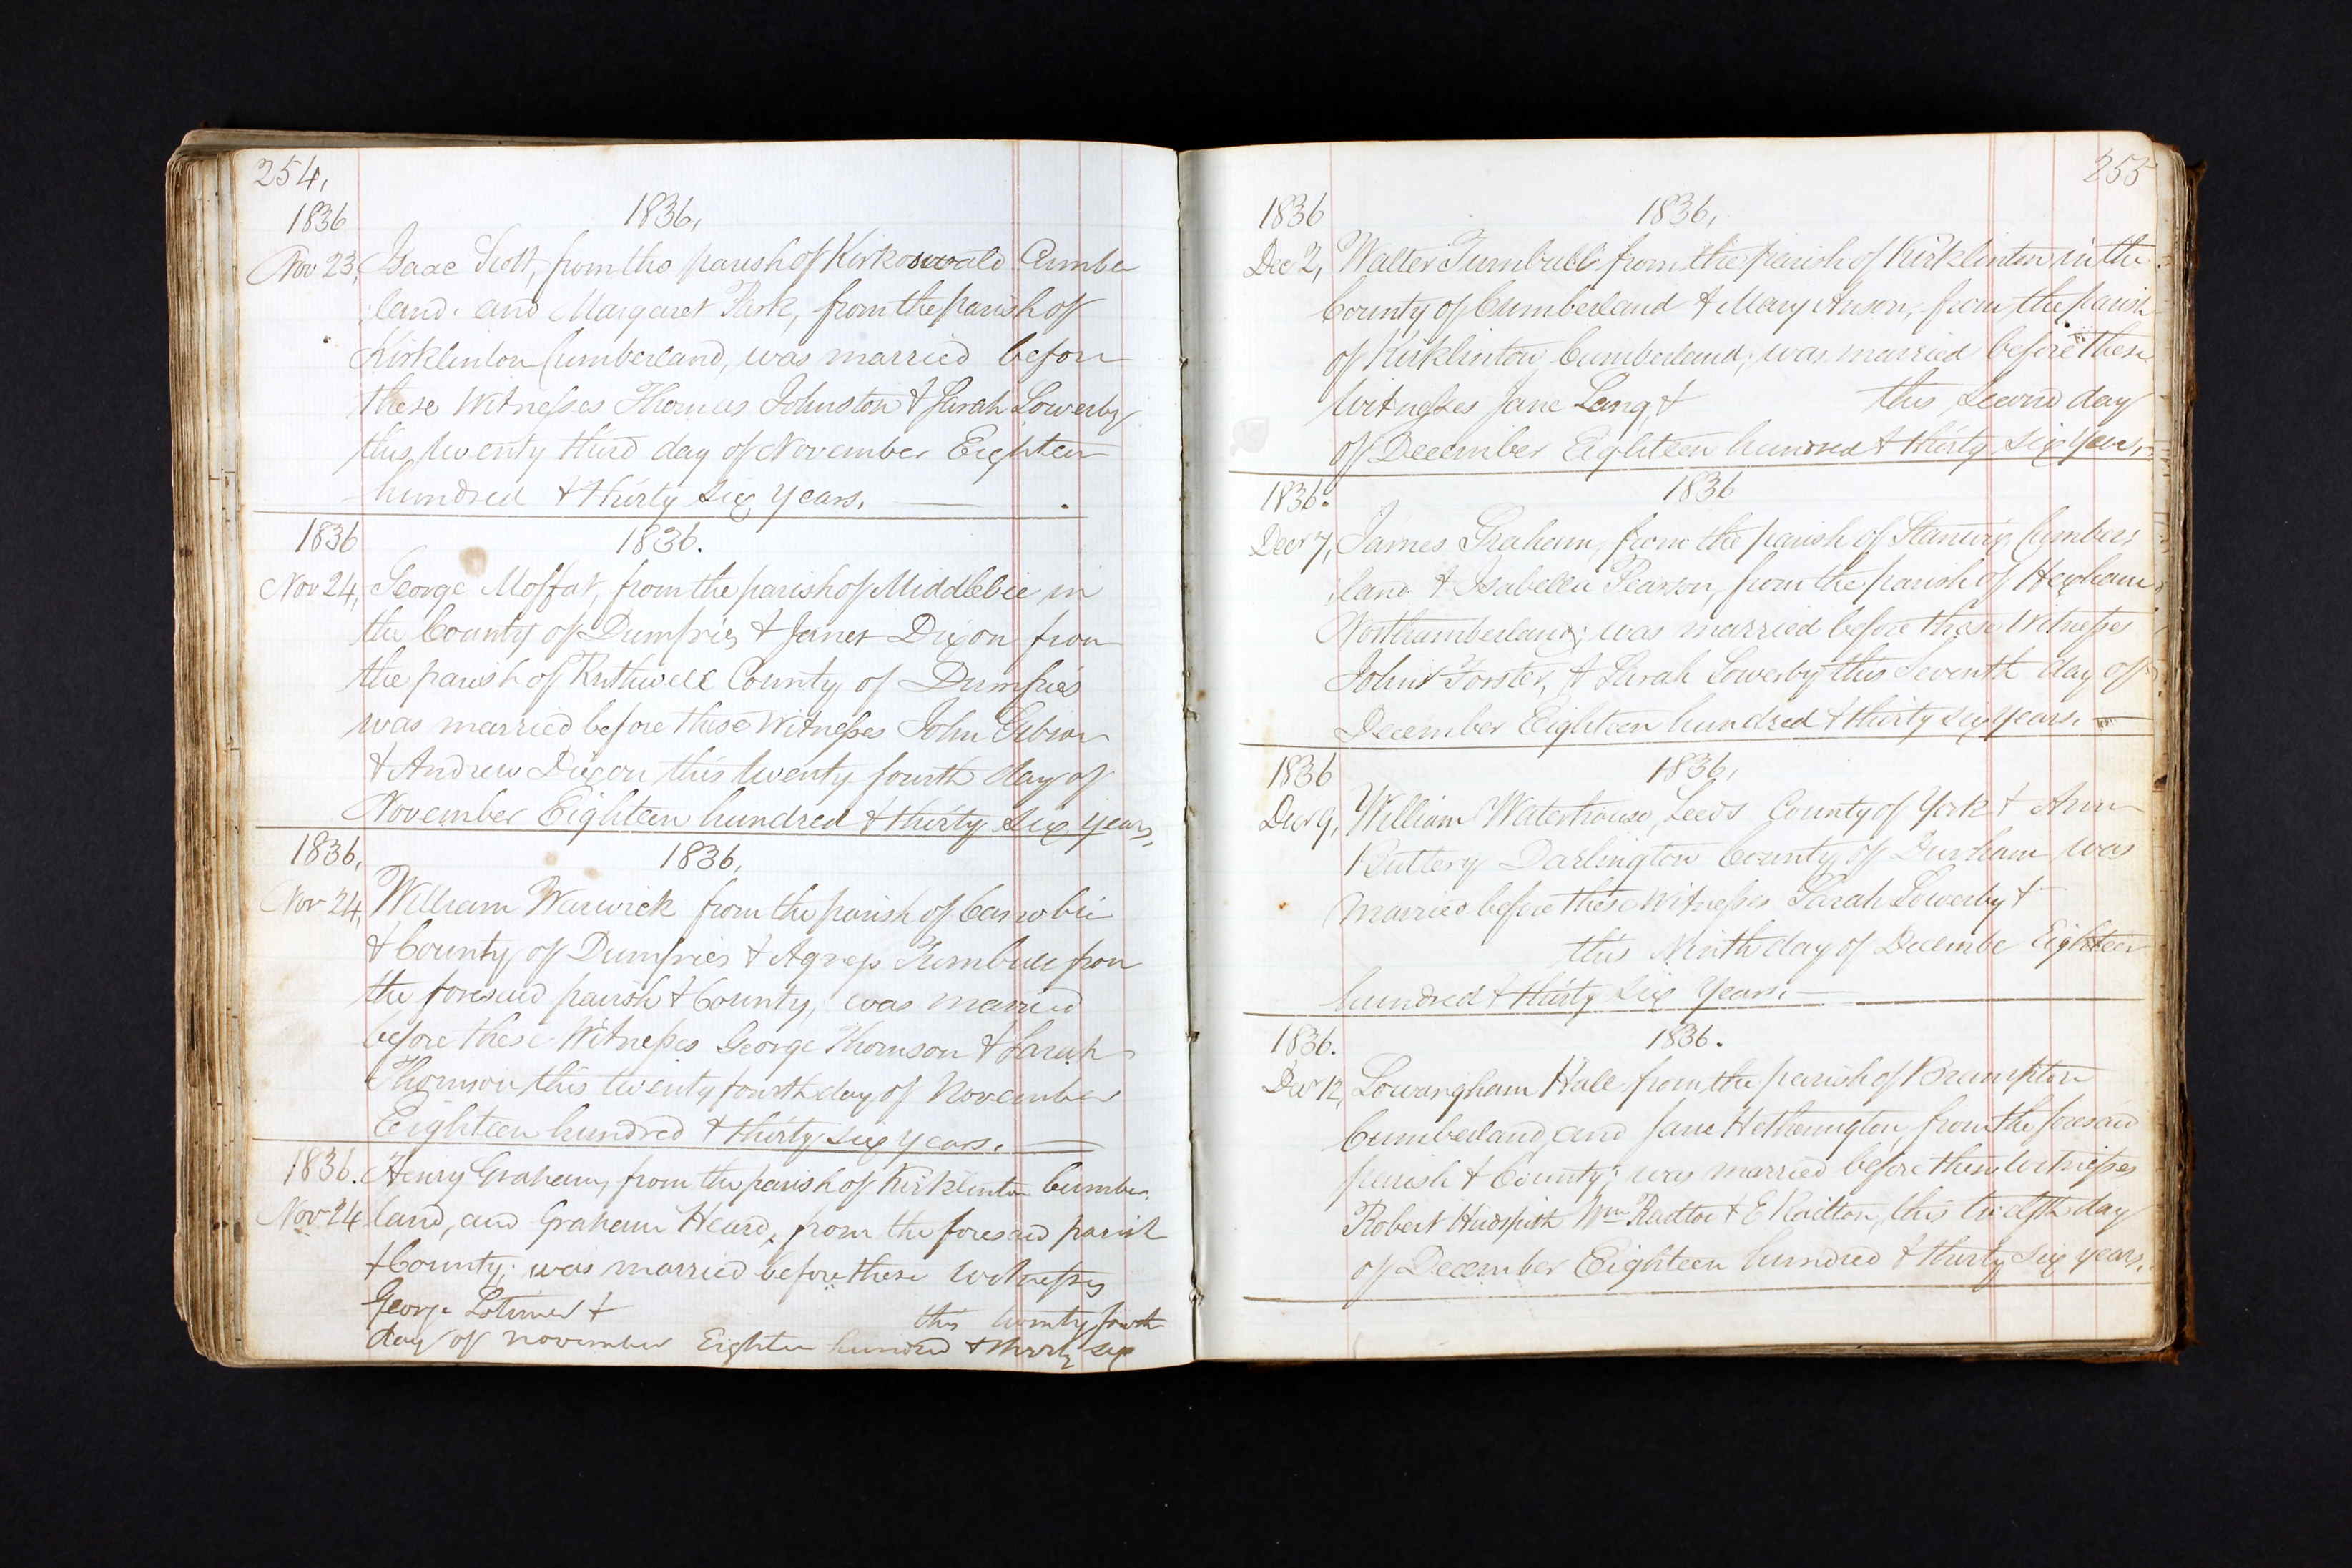 254,
1836 1836,
Nov 23, Isaac Scott, from the parish of Kirkoswald Cumber
land. and Margaret Park, from the parish of
Kirklinton Cumberland, was married before
these Witnesses Thomas Johnston & Sarah Lowerby
this twenty third day of November Eighteen
hundred & thirty six years.
1836 1836.
Nov 24, George Moffat, from the parish of Middlebie in
the County of Dumfries & Janet Dixon from
the parish of Ruthwell County of Dumfries
was married before these Witnesses John Gibson
& Andrew Dixon this twenty fourth day of
November Eighteen hundred & thirty six years,
1836, 1836,
Nov 24, William Warwick from the parish of
& County of Dumfries & Agness Turnbull from
the foresaid parish & County, was married
before these Witnesses George Thomson & Sarah
Thomson this twenty fourth day of November
Eighteen hundred & thirty six years.
1836. Henry Graham, from the parish of Kirklinton Cumber
Nov 24 land, and Graham Heard, from the foresaid parish
& County; was married before these Witnesses
George Lotimer & this twenty fourth
day of November Eighteen hundred & thirty six
255
1836 1836,
Dec 2, Walter Turnbull from the parish of Kirklinton in the
County of Cumberland & Mary Anson, from the parish
of Kirklinton Cumberland; was married before these
Witnesses Jane Lang & this second day
of December Eighteen hundred & thirty six years,
1836. 1836
Decr 7, James Graham, from the parish of Stanwix Cumber
land & Isabella Pearson, from the parish of Hexham
Northumberland; was married before these Witnesses
John Forster, & Sarah Lowerby this Seventh day of
December Eighteen hundred & thirty six years.
1836 1836,
Decr 9, William Waterhouse, Leeds County of York & Ann
Buttery Darlington County of Durham was
married before these Witnesses Sarah Lowerby &
this Ninth day of Decembe Eighteen
hundred & thirty six years.
1836. 1836.
Decr 12, Hall from the parish of Brampton
Cumberland, and Jane Hetherington, from the foresaid
parish & County; was married before these Witnesses
Robert Hudspith Wm Railton & E Railton, this twelfth day
of December Eighteen hundred & thirty six years.